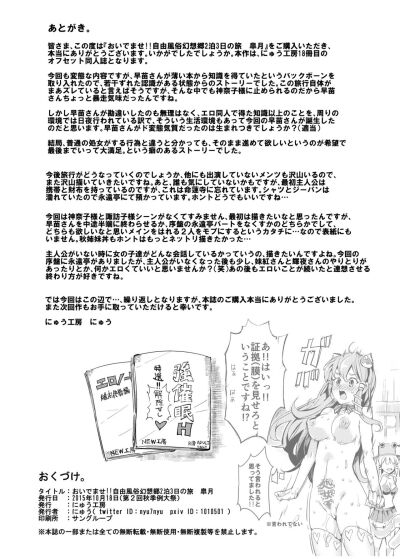 あとがき。
皆さま、この度は『おいでませ!!自由風俗幻想郷2泊3日の旅 皐月』をご購入いただき、
本当にありがとうございます。いかがでしたでしょうか。本作は、にゅう工房18冊目の
オフセット同人誌となります。
今回も変態な内容ですが、早苗さんが薄い本から知識を得ていたというバックボーンを
取り入れたので、若干ずれた認識がある状態からのストーリーでした。この旅行自体が
まあズレていると言えばそうですが、そんな中でも神奈子様に止められるのだから早苗
さんちょっと暴走気味だったんですね。
しかし早苗さんが勘違いしたのも無理はなく、エロ同人で得た知識以上のことを、周りの
環境では日夜行われている訳で、そういう生活環境もあって今回の早苗さんが誕生し
たのだと思います。早苗さんがド変態気質だったのは生まれつきでしょうか?(適当)
結局、普通の処女がする行為と違うと分かっても、そのまま進めて欲しいというのが希望で
最後までいって大満足。という癖のあるストーリーでした。
今後旅行がどうなっていくのでしょうか、他にも出演していないメンツも沢山いるので、
また沢山描いていきたいですね。あと、誰も気にしていないかもですが、最初主人公が
携帯と財布を持っているのですが、これは命蓮寺に置いてきています。シャツとジーパンは
濡れていたので永遠亭にて預かっています。ホントどうでもいいですね…
今回は神奈子様と諏訪子様シーンがなくてすみません、最初は描きたいなと思ったんですが、
早苗さんを中途半端に終わらせるか、序盤の永遠亭パートをなくすかのどちらかでして、
どちらも欲しいなと思いメインをはれる2人をモブにするというカタチに…なので表紙にも
いません。秋姉妹丼もホントはもっとネットリ描きたかった…
主人公がいない時に女の子達がどんな会話しているかっていうの、描きたいんですよね。今回
の序盤に永遠亭がありましたが、主人公がいなくなった後も少し、妹紅さんと輝夜さんのやりとり
があったりとか、何かエロくていいと思いませんか?(笑)あの後もエロいことが続いたと連想させる
終わり方が好きですね。
では今回はこの辺で…、繰り返しとなりますが、本誌のご購入本当にありがとうございました。
また次回作もお手に取っていただけると幸いです。
にゅう工房 にゅう
あ!!はいっ!!
証拠(膜)を見せろと
いうことですね!?
そう言われると
思ってました!!
※言われてない
特選!!
強催眠
NEW工房
NEW工房
おくづけ。
タイトル:おいでませ!!自由風俗幻想郷2泊3日の旅 皐月
発行日:2015年10月18日(第2回秋季例大祭)
発行:にゅう工房
発行者:にゅう( twitter ID:nyu7nyu pxiv ID:1010501 )
印刷所:サングループ
※本誌の一部または全ての無断転載・無断使用・無断複製等を禁止します。